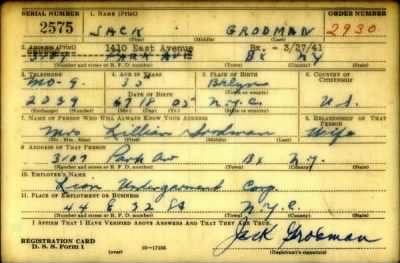 SERIAL NUMBER 1. NAME (Print) ORDER NUMBER
2575 JACK GRODMAN 2930
(First) (Middle) (Last)
2. ADDRESS (Print) 1410 East Avenue Bx. - 3/27/41
PARK AVE BX NY
(Number and street or R. F. D. number) (Town) (County) (State)
3. TELEPHONE 4. AGE IN YEARS 5. PLACE OF BIRTH 6. COUNTRY OF CITIZENSHIP
MO-9. 35 Bklyn
DATE OF BIRTH
2039 05 N.Y.C. U.S.
(Exchange) (Number) (Mo.) (Day) (Yr.) (State or country)
7. NAME OF PERSON WHO WILL ALWAYS KNOW YOUR ADDRESS 8. RELATIONSHIP OF THAT PERSON
Mrs Lillian Grodman Wife
(Mr., Mrs., Miss) (First) (Middle) (Last)
9. ADDRESS OF THAT PERSON
3107 Park Av Bx N.Y.
(Number and street or R. F. D. number) (Town) (County) (State)
10. EMPLOYER'S NAME
Undergarment Corp.
11. PLACE OF EMPLOYMENT OR BUSINESS
44 E 32 St N.Y.C.
(Number and street or R. F. D. number) (Town) (County) (State)
I AFFIRM THAT I HAVE VERIFIED ABOVE ANSWERS AND THAT THEY ARE TRUE.
REGISTRATION CARD
D. S. S. Form 1 (over) 16-17105 Jack Grodman